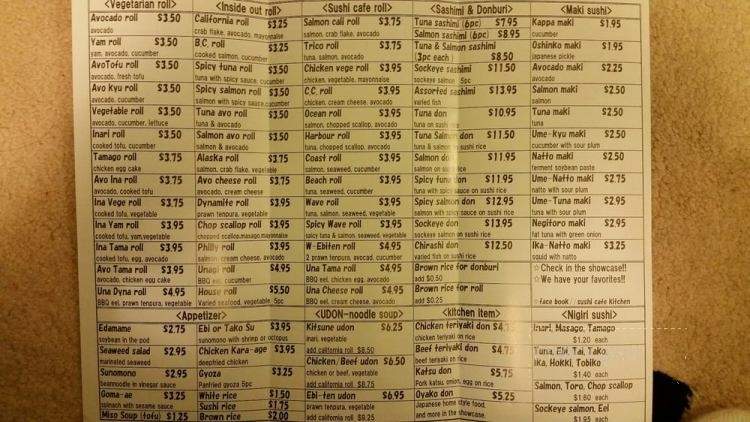 <Vegetarian roll>
Avocado roll $3.50
avocado
Yam roll $3.50
yam, avocado, cucumber
AvoTofu roll $3.50
avocado, fresh tofu
Avo Kyu roll $3.50
avocado, cucumber
Vegetable roll $3.50
avocado, cucumber, lettuce
Inari roll $3.50
cooked tofu, cucumber
Tamago roll $3.75
chicken egg cake
Avo Ina roll $3.75
avocado, cooked tofu
Ina Vege roll $3.75
cooked tofu, vegetable
Ina Yam roll $3.95
cooked tofu, yam,vegetable
Ina Tama roll $3.95
cooked tofu, egg, avocado
Avo Tama roll $3.95
avocado, chicken egg cake
Una Dyna roll $4.95
BBQ eel, prawn tenpura, vegetable
<Inside out roll>
California roll $3.25
crab flake, avocado, mayonaise
B.C. roll $3.25
cooked salmon, cucumber
Spicy tuna roll $3.50
tuna with spicy sauce, cucumber
Spicy salmon roll $3.50
salmon with spicy sauce,cucumber
Tuna avo roll $3.50
tuna & avocado
Salmon avo roll $3.50
salmon & avocado
Alaska roll $3.75
salmon, crab flake, vegetable
Avo cheese roll $3.75
avocado, cream cheese
Dynamite roll $3.95
prawn tenpura, vegetable
Chop scallop roll $3.95
chopped scallop,masago,mayonnaise
Philly roll $3.95
salmon, cream cheese, avocado
Unagi roll $4.95
BBQ eel, cucumber
House roll $5.50
Varied seafood, vegetable 5pc
<Sushi cafe roll>
Salmon cali roll $3.75
salmon, crab flake, avocado
Trico roll $3.75
tuna, salmon, avocado
Chicken vege roll $3.95
chicken, vegetable, mayonnaise
C.C. roll $3.95
chicken, cream cheese, avocado
Ocean roll $3.95
salmon, chopped scallop, avocado
Harbour roll $3.95
tuna, chopped scallop, avocado
Coast roll $3.95
salmon, seaweed, cucumber
Beach roll $3.95
tuna, seaweed, cucumber
Wave roll $3.95
tuna, salmon, seaweed, vegetable
Spicy Wave roll $3.95
spicy tuna & salmon, seaweed, vegetable
W-Ebiten roll $4.95
2 prawn tenpura, avocad, cucumber
Una Tama roll $4.95
BBQ eel, chicken egg, avocado
Una Cheese roll $4.95
BBQ eel, cream cheese, avocado
<Sashimi & Donburi>
Tuna sashimi (6pc) $7.95
Salmon sashimi (6pc) $8.95
Tuna & Salmon sashimi
(3pc each) $8.50
Sockeye sashimi $11.50
sockeye salmon 5pc
Assorted sashimi $13.95
varied fish
Tuna don $10.95
tuna on sushi rice
Tuna Salmon don $11.50
tuna & salmon on sushi rice
Salmon don $11.95
salmon on sushi rice
Spicy tuna don $11.95
tuna with spicy sauce on sushi rice
Spicy salmon don $12.95
salmon with spicy sauce on sushi rice
Sockeye don $13.95
sockeye salmon on sushi rice
Chirashi don $12.50
varied fish on sushi rice
Brown rice for donburi
add $0.50
Brown rice for roll
add $0.25
<Maki sushi>
Kappa maki $1.95
cucumber
Oshinko maki $1.95
japanese pickle
Avocado maki $2.25
avocado
Salmon maki $2.50
salmon
Tuna maki $2.50
tuna
Ume-kyu maki $2.50
cucumber with sour plum
Natto maki $2.50
ferment soybean paste
Ume-Natto maki $2.75
natto with sour plum
Ume-Tuna maki $2.95
tuna with sour plum
Negitoro maki $2.95
fat tuna with green onion
Ika-Natto maki $3.25
squid with natto
☆Check in the showcase!!
☆We have your favorites!!
☆face book / sushi cafe Kitchen
<Appetizer>
Edamame $2.75
soybean in the pod
Seaweed salad $2.95
marinated seaweed
Sunomono $2.95
beannoodle in vinegar sauce
Goma-ae $3.25
spinach with sesame sauce
Miso Soup (tofu) $1.25
Ebi or Tako Su $3.95
sunomono with shrimp or octopus
Chicken Kara-age $3.95
deepfried chicken
Gyoza $3.25
Panfried gyoza 5pc
White rice $1.50
Sushi rice $1.75
Brown rice $2.00
<UDON-noodle soup>
Kitsune udon $6.25
inari, vegetable
add california roll $8.50
Chicken/Beef udon $6.50
chicken or beef, vegetable
add california roll $8.75
Ebi-ten udon $6.95
prawn tenpura, vegetable
add california roll $9.25
<kitchen item>
Chicken teriyaki don $4.75
chicken teriyaki on rice
Beef teriyaki don $4.75
beef teriyaki on rice
Katsu don $5.75
Pork katsu, onion, egg on rice
Oyako don $5.25
Japanese home style food,
and more in the showcase.
<Nigiri sushi>
Inari, Masago, Tamago
$1.20 each
Tuna, Ebi, Tai, Tako,
Ika, Hokki, Tobiko
$1.40 each
Salmon, Toro, Chop scallop
$1.60 each
Sockeye salmon, Eel
$1.95 each